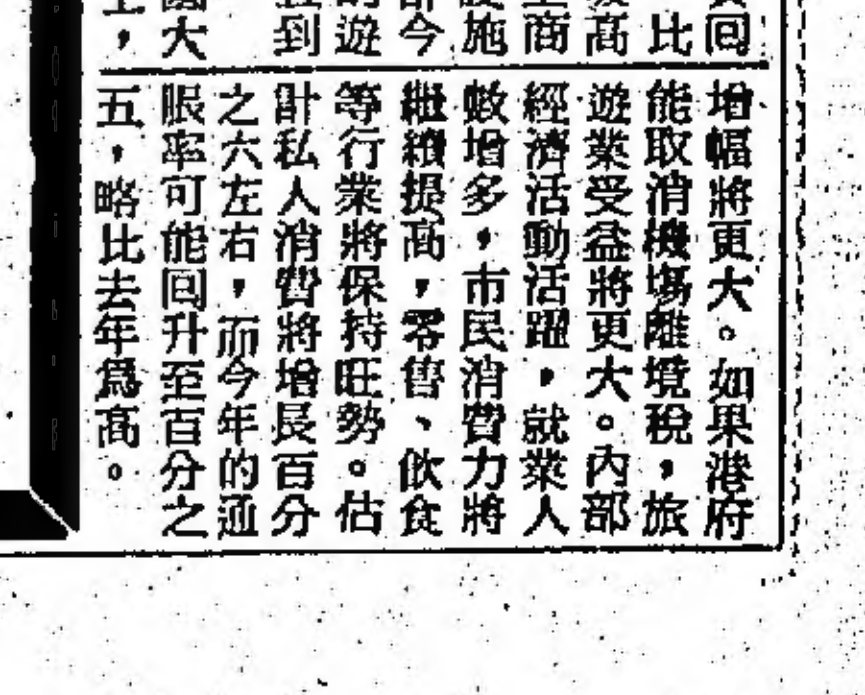 回
比
高
商
施
今
的遊
到
大
上，
增幅將更大。如果港府
能取消機塲離境稅，旅
遊業受益將更大。內部
經濟活動活躍，就業人
數增多，市民消費力將
繼續提高，零售、飲食
等行業將保持旺勢。估
計私人消費將增長百分
之六左右，而今年的通
眼率可能回升至百分之
五，略比去年爲高。